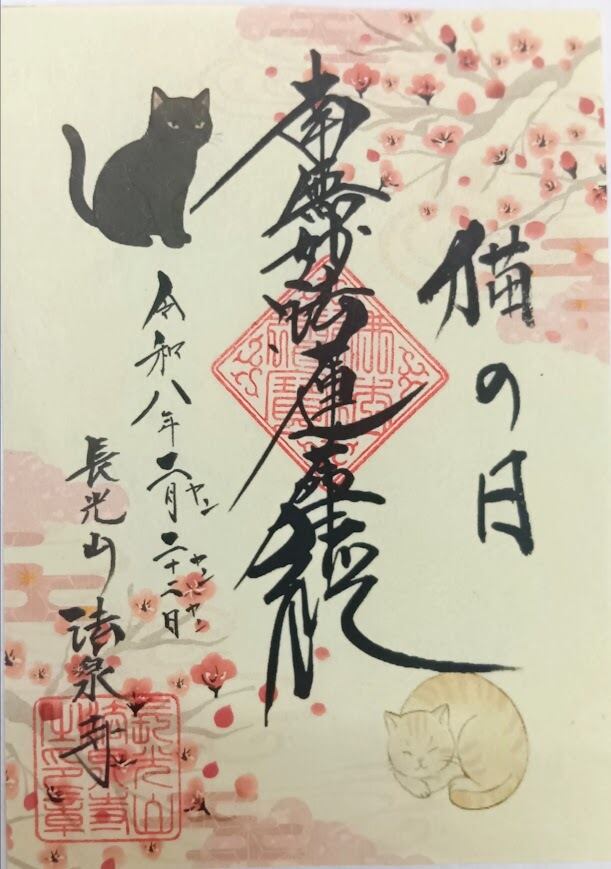 猫の日
南無妙法蓮華経
令和八年二月二十二日
ニャン
ニャンニャン
長光山
法泉寺